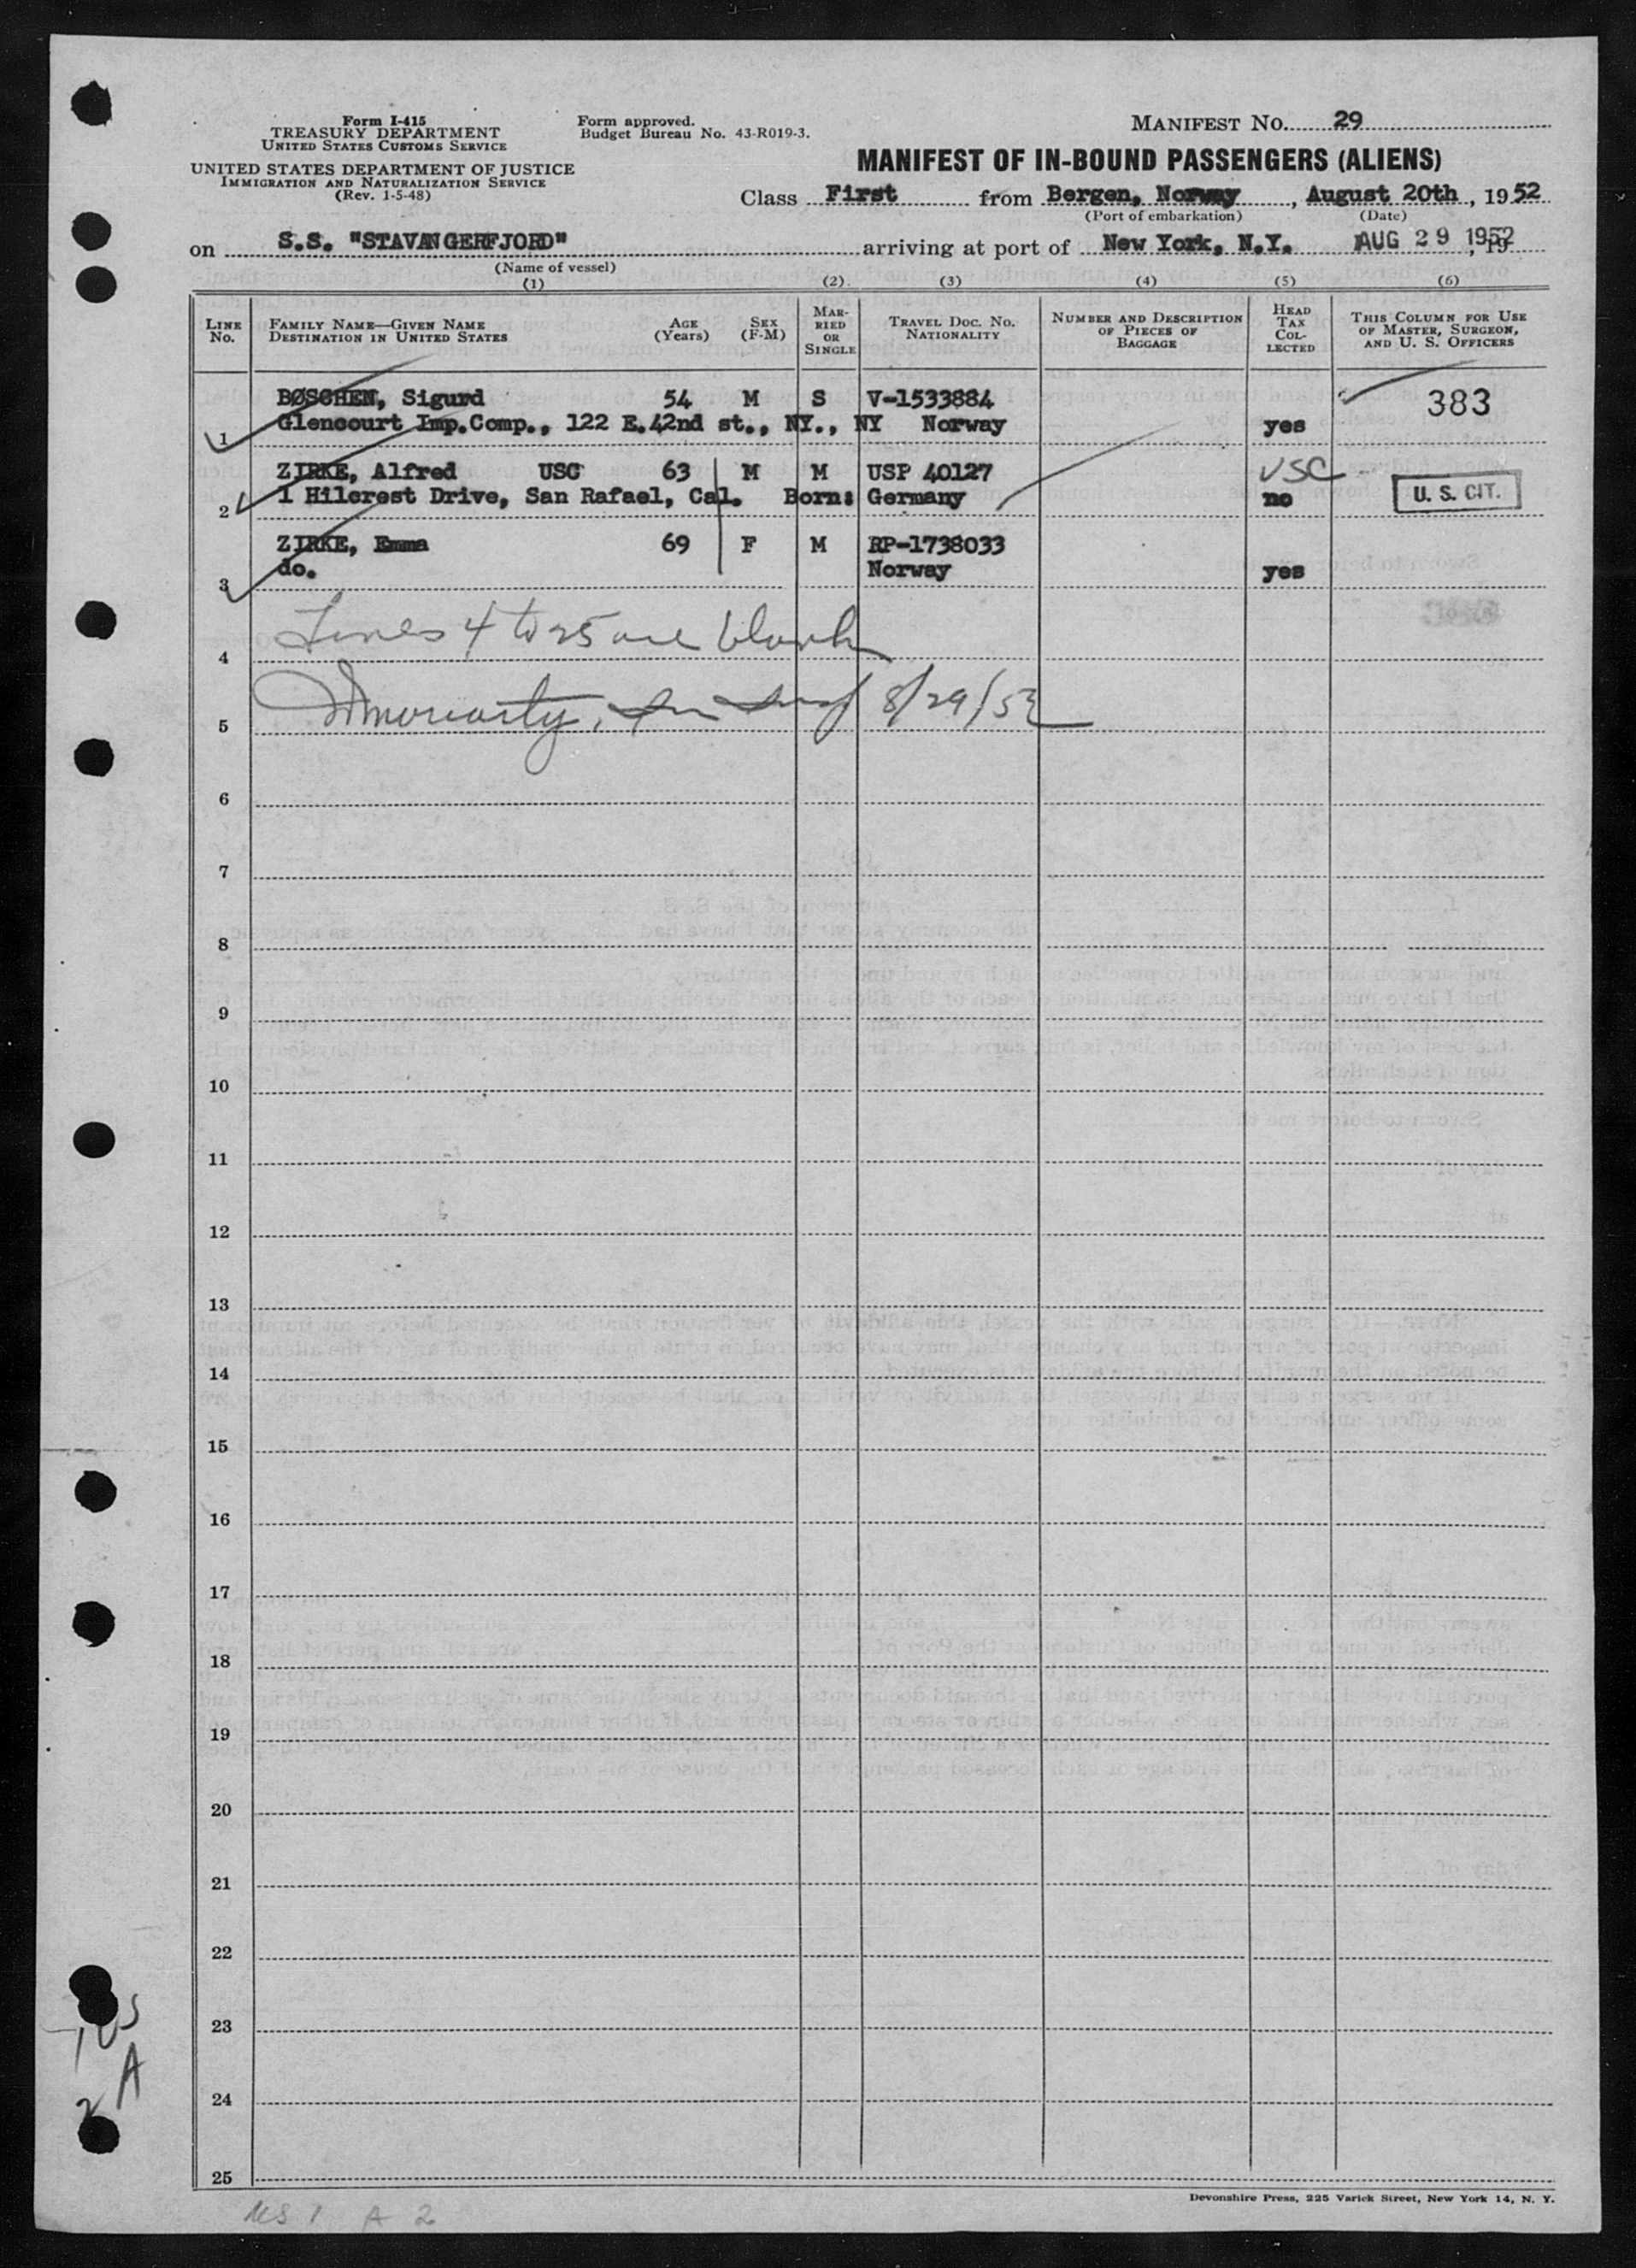 Form I-415
TREASURY DEPARTMENT
UNITED STATES CUSTOMS SERVICE
UNITED STATES DEPARTMENT OF JUSTICE
IMMIGRATION AND NATURALIZATION SERVICE
(Rev. 1-5-48)
Form approved.
Budget Bureau No. 43-R019-3.
MANIFEST NO. 29
MANIFEST OF IN-BOUND PASSENGERS (ALIENS)
Class First from Bergen, Norway, August 20th, 1952
(Port of embarkation) (Date)
on S.S. "STAVANGERFJORD" arriving at port of New York, N.Y. AUG 29 1952, 19
(Name of vessel)
(1) (2) (3) (4) (5) (6)
LINE NO. FAMILY NAME—GIVEN NAME DESTINATION IN UNITED STATES AGE (Years) SEX (F-M) MARRIED OR SINGLE TRAVEL DOC. NO. NATIONALITY NUMBER AND DESCRIPTION OF PIECES OF BAGGAGE HEAD TAX COLLECTED THIS COLUMN FOR USE OF MASTER, SURGEON, AND U. S. OFFICERS
BØSCHEN, Sigurd 54 M S V-1533884 383
1 Glencourt Imp.Comp., 122 E.42nd st., NY., NY Norway yes
ZIRKE, Alfred USC 63 M M USP 40127 USC
2 1 Hilcrest Drive, San Rafael, Cal. Born: Germany no U. S. CIT.
ZIRKE, Emma 69 F M RP-1738033
3 do. Norway yes
4 Lines 4 to 25 are blank
5 Moriarty, 8/29/52
6
7
8
9
10
11
12
13
14
15
16
17
18
19
20
21
22
23
24
25
Devonshire Press, 225 Varick Street, New York 14, N. Y.
US 1 A 2